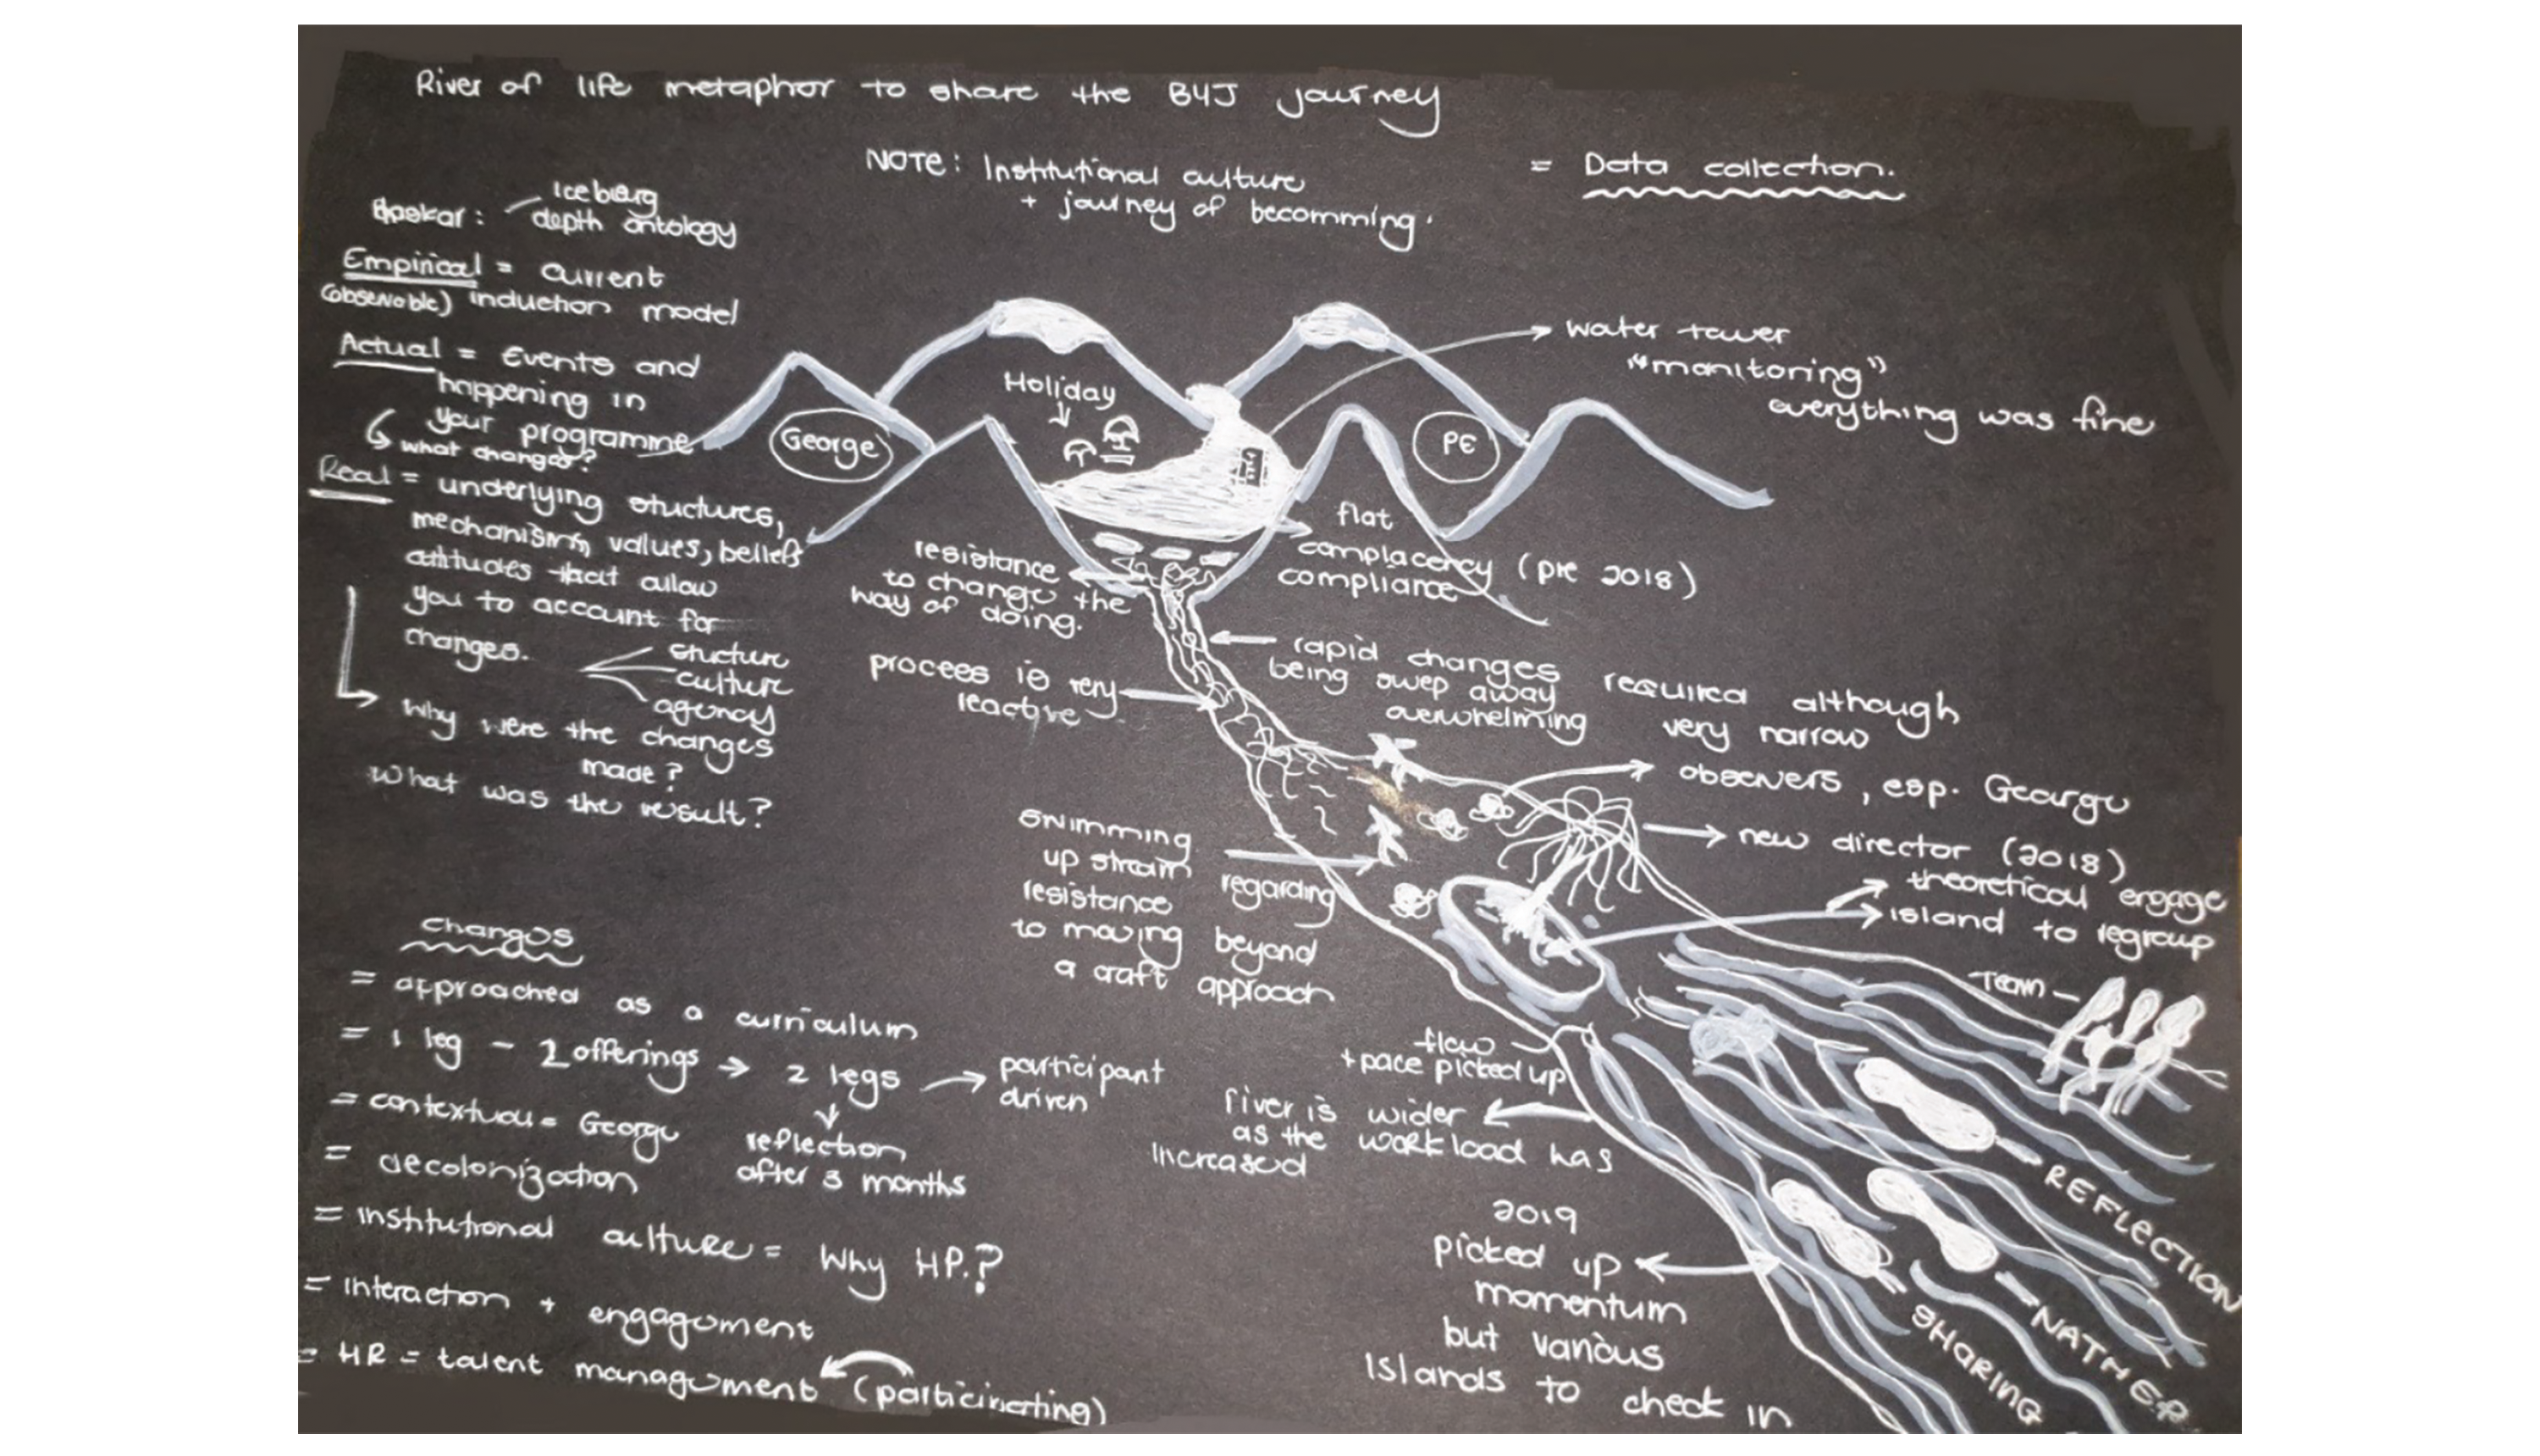 River of life metaphor to share the B4J journey
NOTE: Institutional culture
+ journey of becomming.
= Data collection.
Iceberg
depth ontology
Empirical = current
(observable) induction model
Actual = Events and
happening in
your programme
what changed?
Real = underlying structures,
mechanisms, values, beliefs
attitudes that allow
you to account for
changes.
structure
culture
agency
Why were the changes
made?
What was the result?
George
Holiday
PE
water tower
"monitoring"
everything was fine
flat
complacency (pre 2018)
compliance
resistance
to change the
way of doing.
rapid changes required although
being swep away very narrow
overwhelming
process is very
reactive
observers, esp. George
new director (2018)
theoretical engage
island to regroup
swimming
up stream
resistance regarding
to moving beyond
a craft approach
Team
flow
+ pace picked up
river is wider
as the workload has
increased
2019
picked up
momentum
but various
islands to check in
REFLECTION
SHARING
changes
= approached as a curriculum
= 1 leg - 2 offerings → 2 legs → participant
driven
reflection
after 3 months
= contextual = George
= decolonization
= institutional culture = Why HP.?
= interaction + engagement
= HR = talent management (participating)